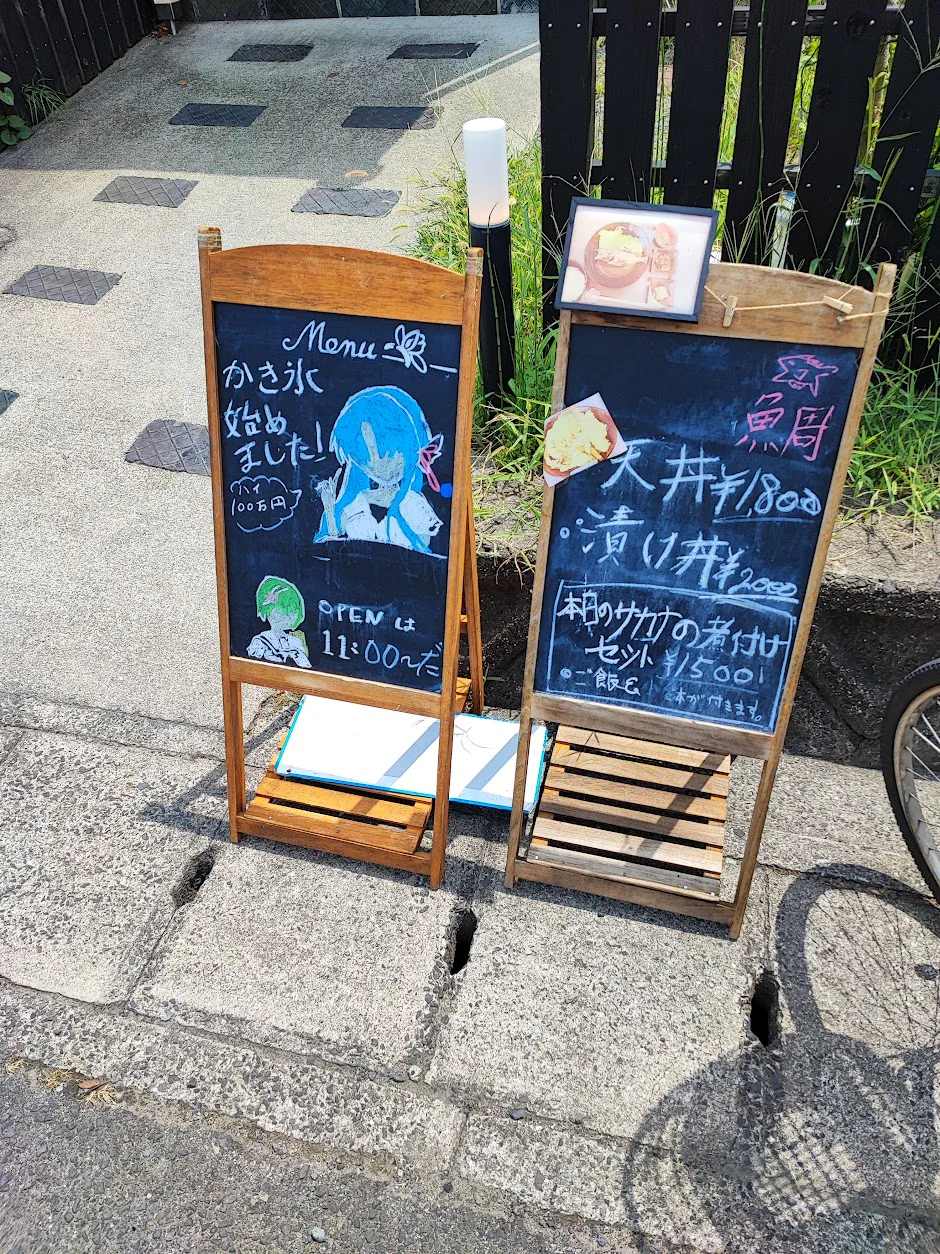 Menu
かき氷
始め
ました!
ハイ
100万円
OPEN は
11:00〜だ
魚周
天丼 ¥1,800
漬け丼 ¥2000
本日のサカナの煮付け
セット ¥1500
ご飯と
本が付きます。